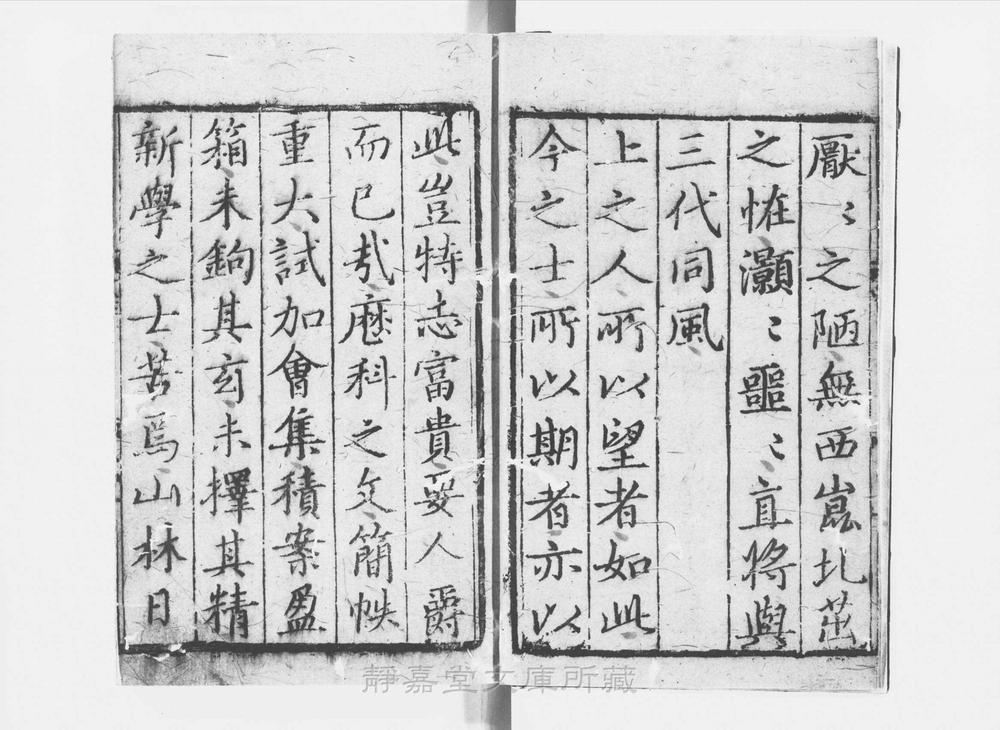 厭〻之陋無西崑北茁
之恠灝〻噩〻直將與
三代同風
上之人所以望者如此
今之士所以期者亦以
此豈特志富貴要人爵
而已㢤歴科之文簡帙
重大試加會集積案盈
箱未鉤其玄未擇其精
新學之士苦焉山林日
靜嘉堂文庫所藏